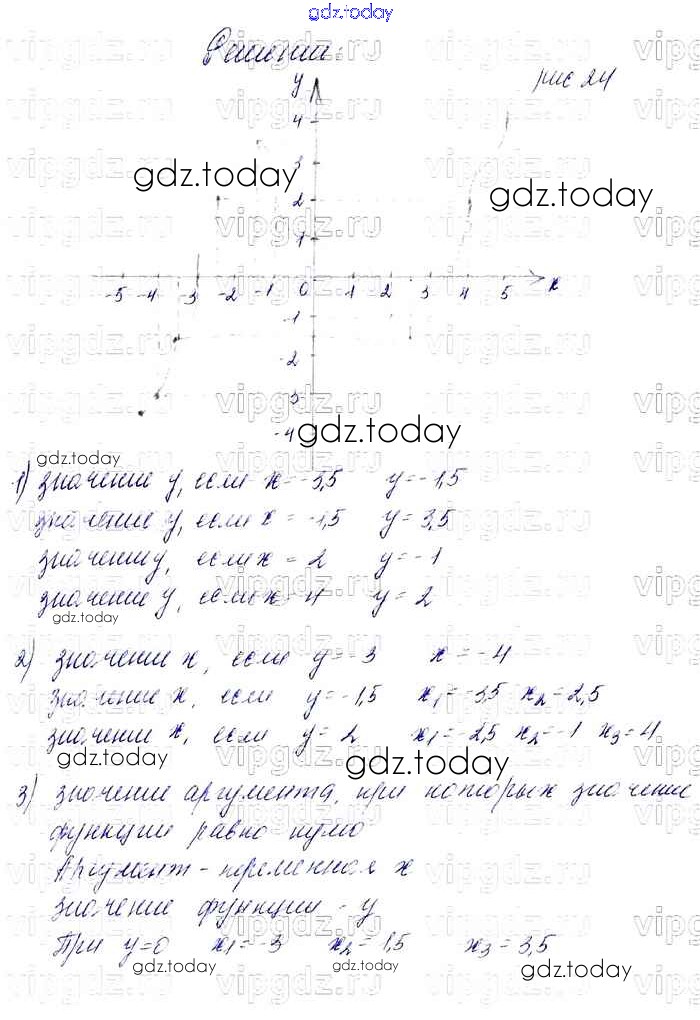 gdz.today
Решение:
y рис 24
4
3
gdz.today
gdz.today
2
1
-5 -4 -3 -2 -1 0 1 2 3 4 5 x
-1
-2
3
gdz.today
-4
gdz.today
1) значение y, если x = -3,5 y = -1,5
значение y, если x = -1,5 y = 3,5
значении y, если x = 2 y = -1
значение y, если x = 4 y = 2
gdz.today
2) значение x, если y = -3 x = -4
значение x, если y = -1,5 x1 = -3,5 x2 = 2,5
значении x, если y = 2 x1 = -2,5 x2 = -1 x3 = 4
gdz.today
gdz.today
3) значение аргумента, при которых значение
функции равно нулю
Аргумент - переменная x
значение функции - y
При y=0 x1 = -3 x2 = 1,5 x3 = 3,5
gdz.today
gdz.today
gdz.today
vipgdz.ru